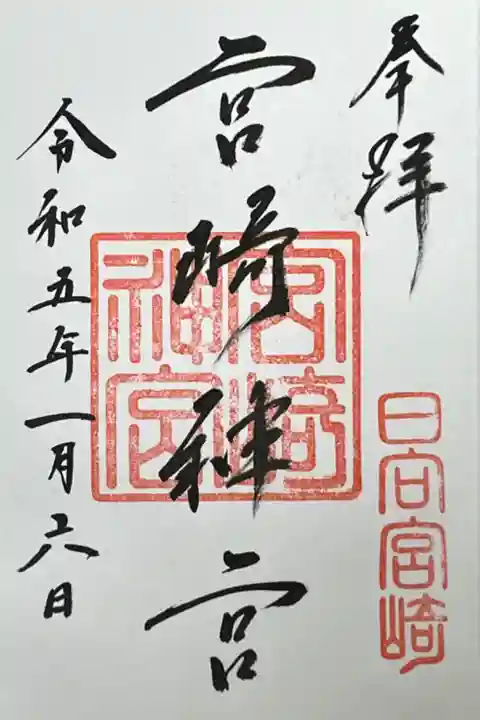 奉拝
日向宮崎
宮崎神宮
宮崎神宮
令和五年一月六日